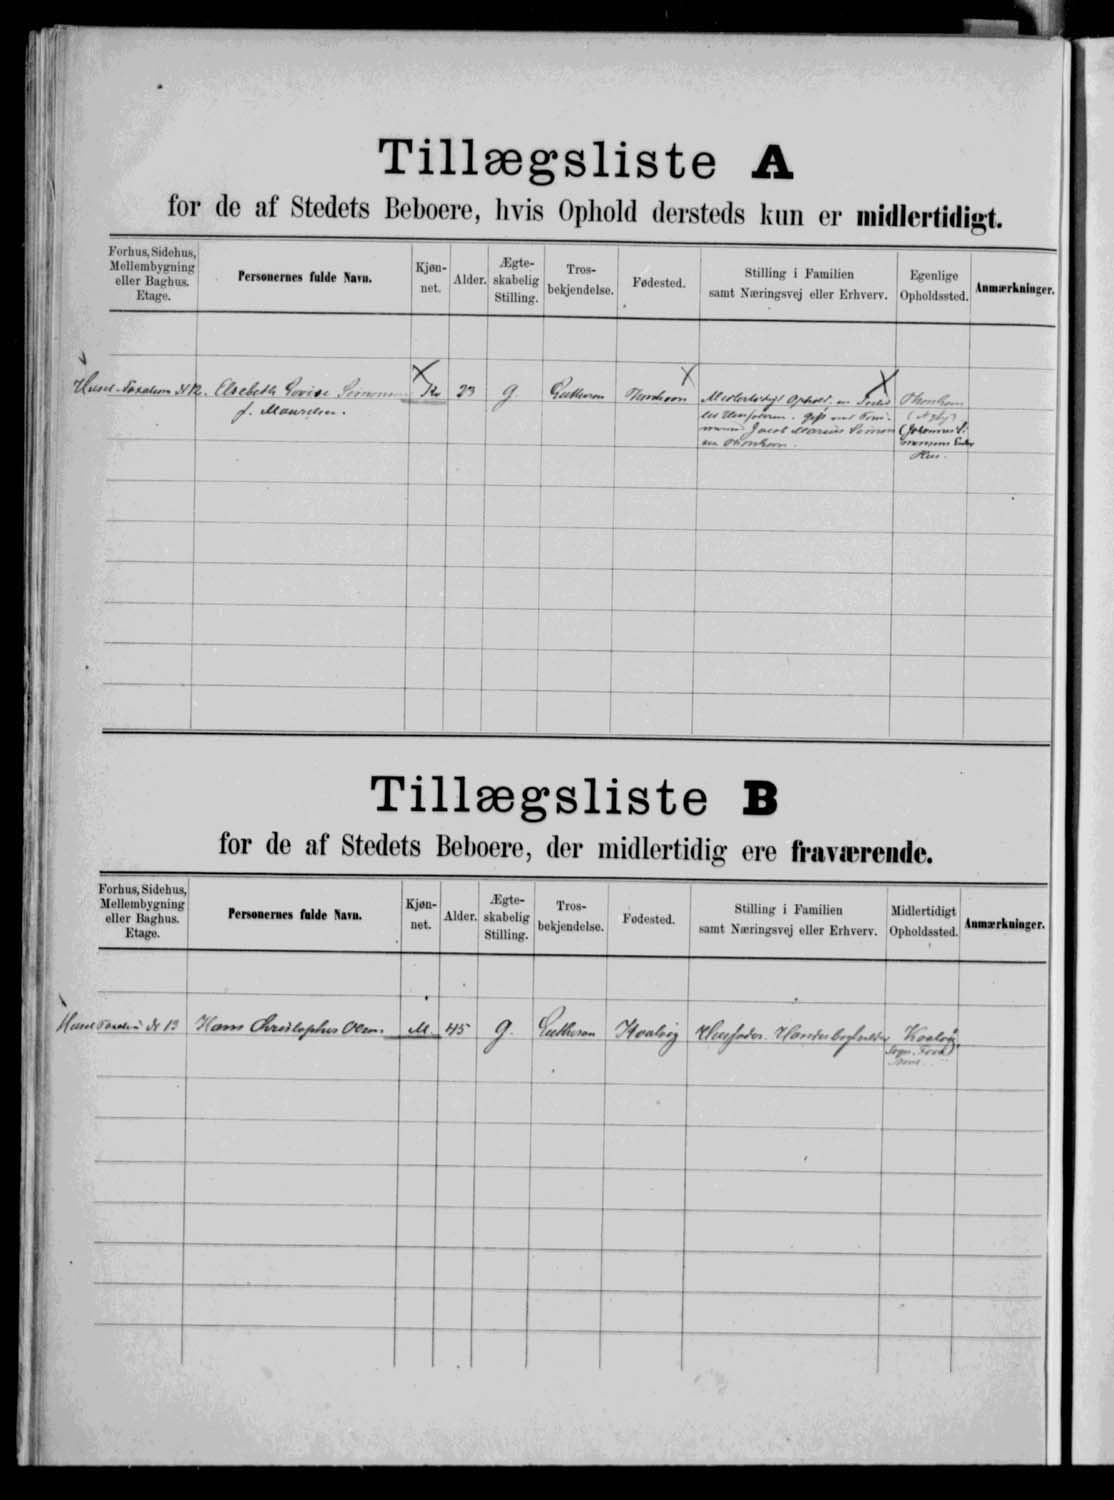 Tillægsliste A
for de af Stedets Beboere, hvis Ophold dersteds kun er midlertidigt.
Forhus, Sidehus, Mellembygning eller Baghus. Etage.
Personernes fulde Navn.
Kjøn-
net.
Alder.
Ægte-
skabelig
Stilling.
Tros-
bekjendelse.
Fødested.
Stilling i Familien
samt Næringsvej eller Erhverv.
Egenlige
Opholdssted.
Anmærkninger.
Elsebeth Lovise
Kv 23 g. Luthersn Thorshavn
f.
Midlertidigt Ophold
gift med
Jacob Marius
Thorshavn
Hus.
Tillægsliste B
for de af Stedets Beboere, der midlertidig ere fraværende.
Forhus, Sidehus,
Mellembygning
eller Baghus.
Etage.
Personernes fulde Navn.
Kjøn-
net.
Alder.
Ægte-
skabelig
Stilling.
Tros-
bekjendelse.
Fødested.
Stilling i Familien
samt Næringsvej eller Erhverv.
Midlertidigt
Opholdssted.
Anmærkninger.
Hans Christopher M. 45 g. Luthersn Kvalvig Husfader. Kvalvig